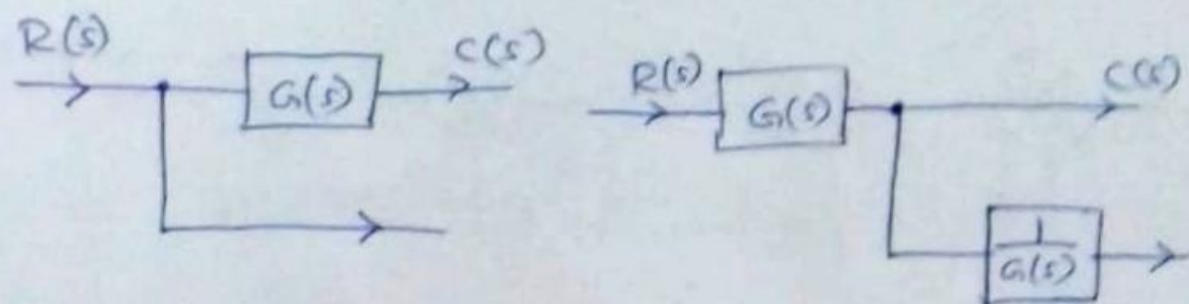 R(s)
G(s)
C(s)
R(s)
G(s)
C(s)
1
G(s)